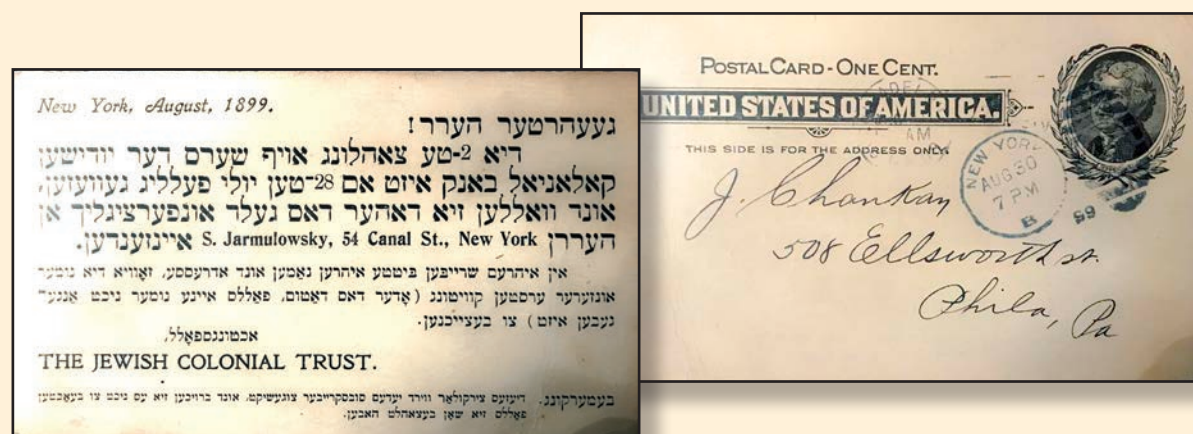 New York, August, 1899.
געעהרטער הערר!
דיא 2-טע צאהלונג אויף שערס דער יודישען
קאלאניאל באנק איזט אם 28-טען יולי פעלליג געוועזען,
אונד וואללען זיא דאהער דאס געלד אונפערציגליך אן
הערון S. Jarmulowsky, 54 Canal St., New York איינזענדען.
אין איהרעם שרייבען ביטטע איהרען נאמען אונד אדרעססע, זאוויא דיא נומער
אונזערער ערסטען קוויטונג (אדער דאס דאטום, פאללס איינע נומער ניכט אנגע־
געבען איזט) צו בעצייכנען.
אכטונגספאלל,
THE JEWISH COLONIAL TRUST.
בעמערקונג. דיעזעס צירקולאר ווירד יעדעם סובסקרייבער צוגעשיקט, אונד ברויכען זיא עס ניכט צו בעאכטען
פאללס זיא שאן בעצאהלט האבען.
POSTAL CARD - ONE CENT.
UNITED STATES OF AMERICA.
THIS SIDE IS FOR THE ADDRESS ONLY.
NEW YORK
AUG 30
7 PM
B
99
AM
J. Chankay
508 Ellsworth st.
Phila, Pa